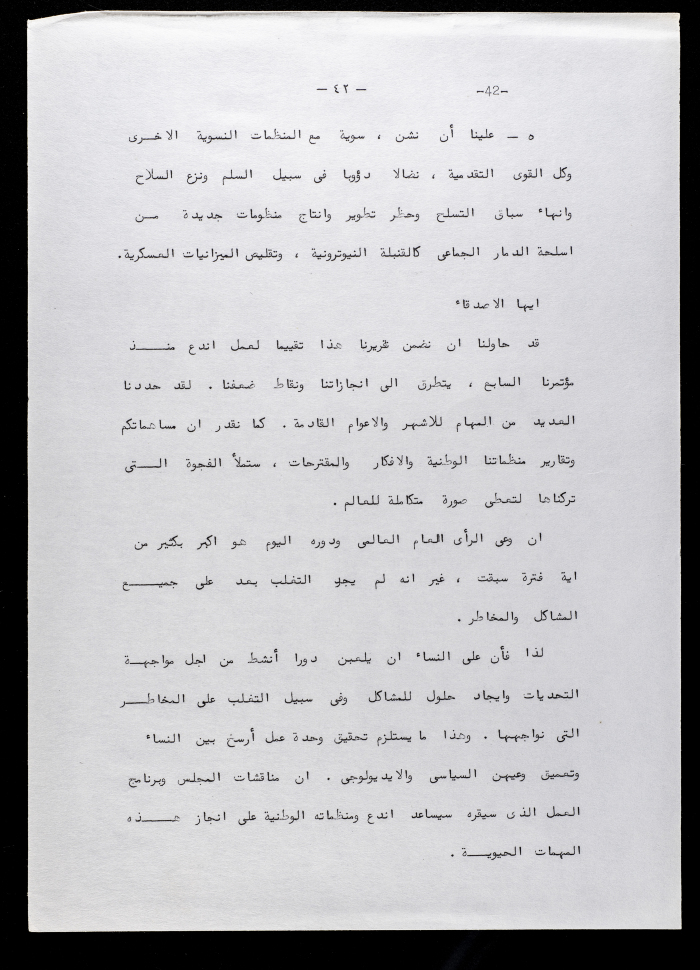 - ٤٢ -
-42-
٥ - علينا أن نشن ، سوية مع المنظمات النسوية الاخرى
وكل القوى التقدمية ، نضالا دؤوبا فى سبيل السلم ونزع السلاح
وانهاء سباق التسلح وحظر تطوير وانتاج منظومات جديدة من
اسلحة الدمار الجماعى كالقنبلة النيوترونية ، وتقليص الميزانيات العسكرية.
ايها الاصدقاء
قد حاولنا ان نضمن تقريرنا هذا تقييما لعمل اندع منذ
مؤتمرنا السابع ، يتطرق الى انجازاتنا ونقاط ضعفنا . لقد حددنا
العديد من المهام للأشهر والاعوام القادمة . كما نقدر ان مساهماتكم
وتقارير منظماتنا الوطنية والافكار والمقترحات ، ستملأ الفجوة التى
تركناها لتعطى صورة متكاملة للعالم .
ان وعى الرأى العام العالمى ودوره اليوم هو اكبر بكثير من
اية فترة سبقت ، غير انه لم يجر التغلب بعد على جميع
المشاكل والمخاطر .
لذا فأن على النساء ان يلعبن دورا أنشط من اجل مواجهة
التحديات وايجاد حلول للمشاكل وفى سبيل التغلب على المخاطر
التى نواجهها . وهذا ما يستلزم تحقيق وحدة عمل أرسخ بين النساء
وتعميق وعيهن السياسى والايديولوجى . ان مناقشات المجلس وبرنامج
العمل الذى سيقره سيساعد اندع ومنظماته الوطنية على انجاز هذه
المهمات الحيوية .